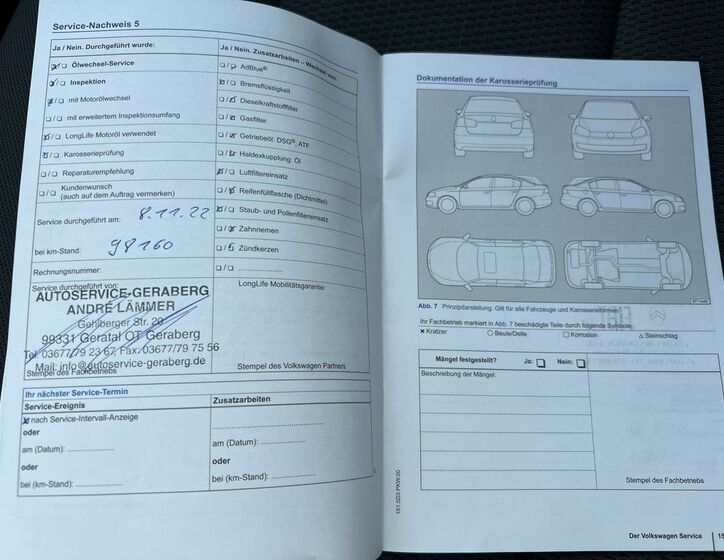 Service-Nachweis 5
Ja / Nein. Durchgeführt wurde:
Ölwechsel-Service
Inspektion
mit Motorölwechsel
mit erweitertem Inspektionsumfang
LongLife Motoröl verwendet
Karosserieprüfung
Reparaturempfehlung
Kundenwunsch
(auch auf dem Auftrag vermerken)
Service durchgeführt am: 8.11.22
bei km-Stand: 98160
Rechnungsnummer:
Service durchgeführt von:
AUTOSERVICE-GERABERG
ANDRÉ LÄMMER
Gehlberger Str. 20
99331 Geratal OT Geraberg
Tel. 03677/79 23 67, Fax: 03677/79 75 56
Mail: info@autoservice-geraberg.de
Stempel des Fachbetriebs
Ja / Nein. Zusatzarbeiten – Wechsel von:
AdBlue®
Bremsflüssigkeit
Dieselkraftstofffilter
Gasfilter
Getriebeöl: DSG®, ATF
Haldexkupplung: Öl
Luftfiltereinsatz
Reifenfüllflasche (Dichtmittel)
Staub- und Pollenfiltereinsatz
Zahnriemen
Zündkerzen
LongLife Mobilitätsgarantie:
Stempel des Volkswagen Partners
Ihr nächster Service-Termin
Service-Ereignis
nach Service-Intervall-Anzeige
oder
am (Datum):
oder
bei (km-Stand):
Zusatzarbeiten
am (Datum):
oder
bei (km-Stand):
Dokumentation der Karosserieprüfung
Abb. 7 Prinzipdarstellung. Gilt für alle Fahrzeuge und Karosserieformen.
Ihr Fachbetrieb markiert in Abb. 7 beschädigte Teile durch folgende Symbole:
Kratzer
Beule/Delle
Korrosion
Steinschlag
Mängel festgestellt? Ja: Nein:
Beschreibung der Mängel:
Stempel des Fachbetriebs
151.5D3.PKW.00
Der Volkswagen Service